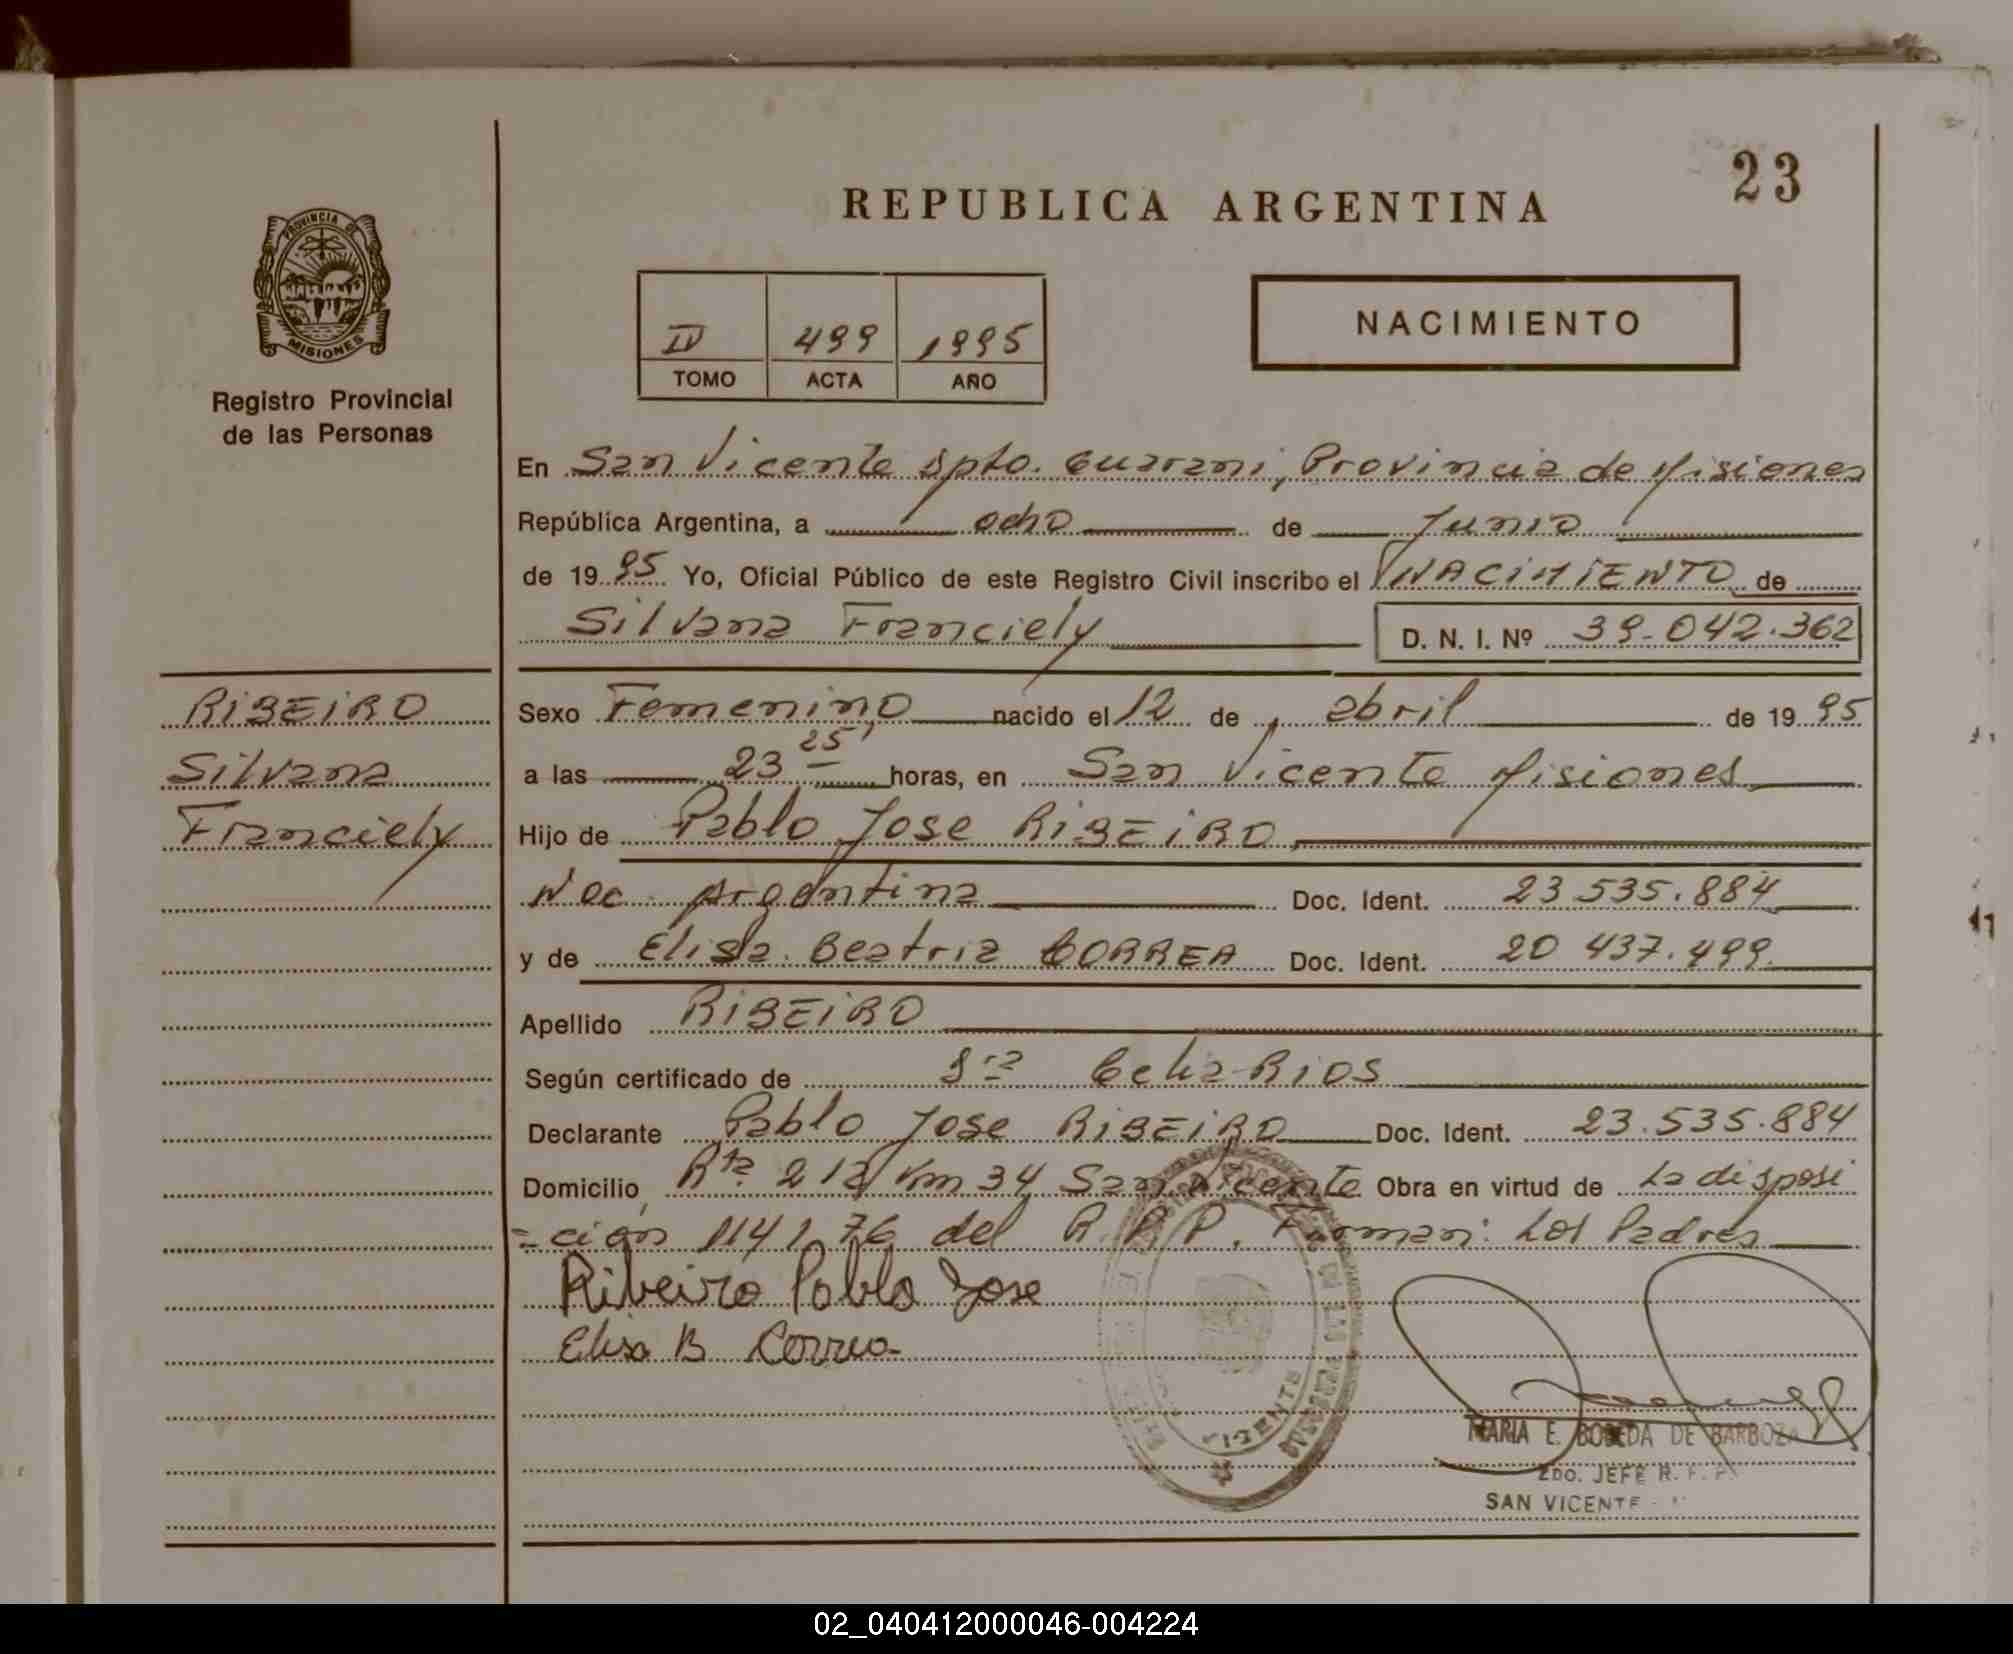 23
REPUBLICA ARGENTINA
PROVINCIA DE
MISIONES
Registro Provincial
de las Personas
II 499 1995
TOMO ACTA AÑO
NACIMIENTO
En San Vicente Dpto. Guarani, Provincia de Misiones
República Argentina, a ocho de Junio
de 1995 Yo, Oficial Público de este Registro Civil inscribo el NACIMIENTO de
Silvana Franciely D. N. I. Nº 39.042.362
RIBEIRO
Silvana
Franciely
Sexo Femenino nacido el 12 de abril de 1995
a las 23 25' horas, en San Vicente Misiones
Hijo de Pablo Jose RIBEIRO
Nac. Argentina Doc. Ident. 23.535.884
y de Elisa Beatriz CORREA Doc. Ident. 20.437.499
Apellido RIBEIRO
Según certificado de Celia Rios
Declarante Pablo Jose RIBEIRO Doc. Ident. 23.535.884
Domicilio Rta. 212 Km 34 San Vicente Obra en virtud de La disposi
=ción 1141 76 del R. P. P. Firman: Los Padres
Ribeiro Pablo Jose
Elisa B Correa
VICENTE
MARIA E. BOBEDA DE BARBOZA
2DO. JEFE R. P. P.
SAN VICENTE -
02_040412000046-004224